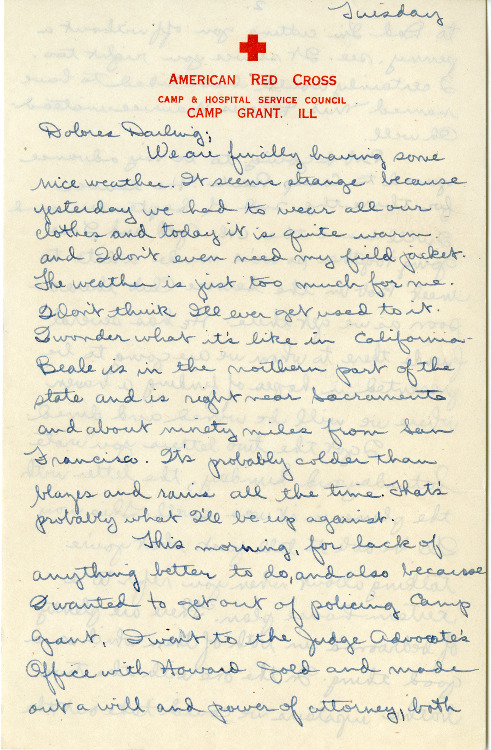 Tuesday
AMERICAN RED CROSS
CAMP & HOSPITAL SERVICE COUNCIL
CAMP GRANT. ILL
Dolores Darling;
We are finally having some
nice weather. It seems strange because
yesterday we had to wear all our
clothes and today it is quite warm
and I don't even need my field jacket.
The weather is just too much for me.
I don't think I'll ever get used to it.
I wonder what it's like in California -
Beale is in the northern part of the
state and is right near Sacramento
and about ninety miles from San
Francisco. It's probably colder than
blazes and rains all the time. That's
probably what I'll be up against.
This morning, for lack of
anything better to do, and also because
I wanted to get out of policing Camp
Grant, I went to the Judge Advocate's
Office with Howard Gold and made
out a will and power of attorney, both